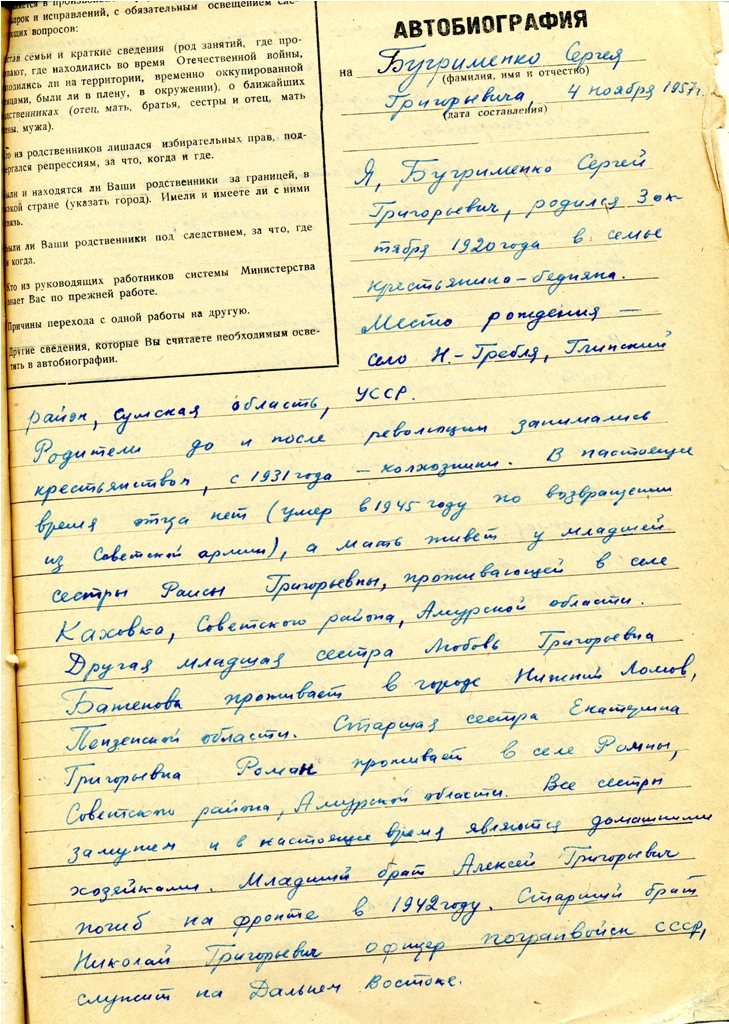 в произвол
арок и исправлений, с обязательным освещением сле-
ющих вопросов:
став семьи и краткие сведения (род занятий, где про-
вают, где находились во время Отечественной войны,
ходились ли на территории, временно оккупированной
мцами, были ли в плену, в окружении), о ближайших
дственниках (отец, мать, братья, сестры и отец, мать
ены, мужа).
то из родственников лишался избирательных прав, под-
ергался репрессиям, за что, когда и где.
ыли и находятся ли Ваши родственники за границей, в
акой стране (указать город). Имели и имеете ли с ними
вязь.
ыли ли Ваши родственники под следствием, за что, где
и когда.
Кто из руководящих работников системы Министерства
знает Вас по прежней работе.
Причины перехода с одной работы на другую.
Другие сведения, которые Вы считаете необходимым осве-
тить в автобиографии.
АВТОБИОГРАФИЯ
на Бугрименко Сергея
(фамилия, имя и отчество)
Григорьевича, 4 ноября 1957г.
(дата составления)
Я, Бугрименко Сергей
Григорьевич, родился 3 ок-
тября 1920 года в семье
крестьянина-бедняка.
Место рождения –
село Н.-Гребля, Глинский
район, Сумская область, УССР.
Родители до и после революции занимались
крестьянством, с 1931 года – колхозники. В настоящее
время отца нет (умер в 1945 году по возвращении
из Советской армии), а мать живет у младшей
сестры Раисы Григорьевны, проживающей в селе
Каховка, Советского района, Амурской области.
Другая младшая сестра Любовь Григорьевна
Баженова проживает в городе Нижний Ломов,
Пензенской области. Старшая сестра Екатерина
Григорьевна Роман проживает в селе Ромны,
Советского района, Амурской области. Все сестры
замужем и в настоящее время являются домашними
хозяйками. Младший брат Алексей Григорьевич
погиб на фронте в 1942 году. Старший брат
Николай Григорьевич офицер погранвойск СССР,
служит на Дальнем Востоке.